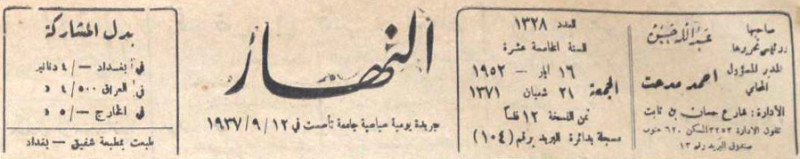 صاحبها
ورئيس تحريرها
عبدالله حسن
المدير المسؤول
المحامي
احمد مدحت
الادارة : شارع حسان بن ثابت
تلفون الادارة ٣٢٥٣ المسكن ٦٢٠ جنوب
صندوق البريد رقم ١٣
العدد ١٣٢٨
السنة الخامسة عشرة
الجمعة
١٦ ايار — ١٩٥٢
٢١ شعبان ١٣٧١
ثمن النسخة ١٢ فلساً
مسجلة بدائرة البريد برقم (١٠٤)
النهار
جريدة يومية سياسية جامعة تأسست في ١٢/٩/١٩٣٧
بدل المشاركة
في بغداد —/٤ دنانير
في العراق ٤/٥٠٠ د
في الخارج —/٥ د
طبعت بمطبعة شفيق — بغداد